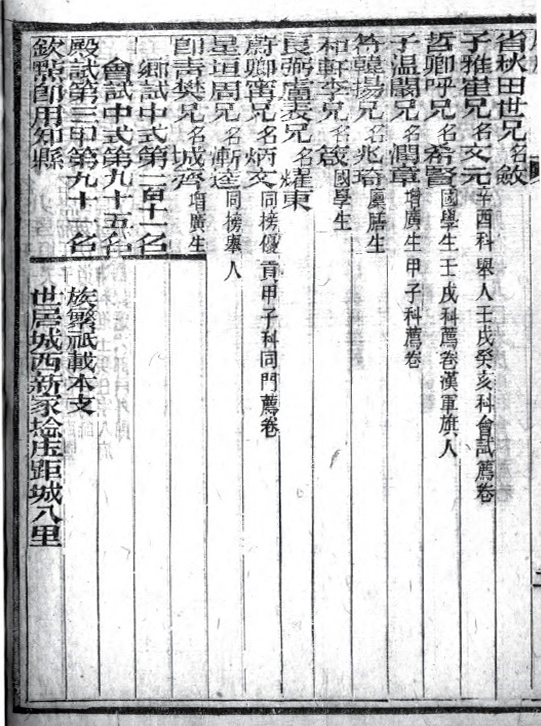 省秋田世兄名斂
子雅崔兄名文元辛酉科舉人壬戌癸亥科會試薦卷
哲卿呼兄名希賢國學生壬戌科薦卷漢軍旗人
子温關兄名潤章增廣生甲子科薦卷
符韓揚兄名兆琦廩膳生
和軒李兄名箴國學生
良弼盧表兄名耀東
蔚卿甯兄名炳文同榜優貢甲子科同門薦卷
星垣周兄名漸逵同榜舉人
即青樊兄名城齊增廣生
鄉試中式第一百十一名
會試中式第九十五名
殿試第三甲第九十一名
欽點即用知縣
族繁祇載本支
世居城西新家埝庄距城八里